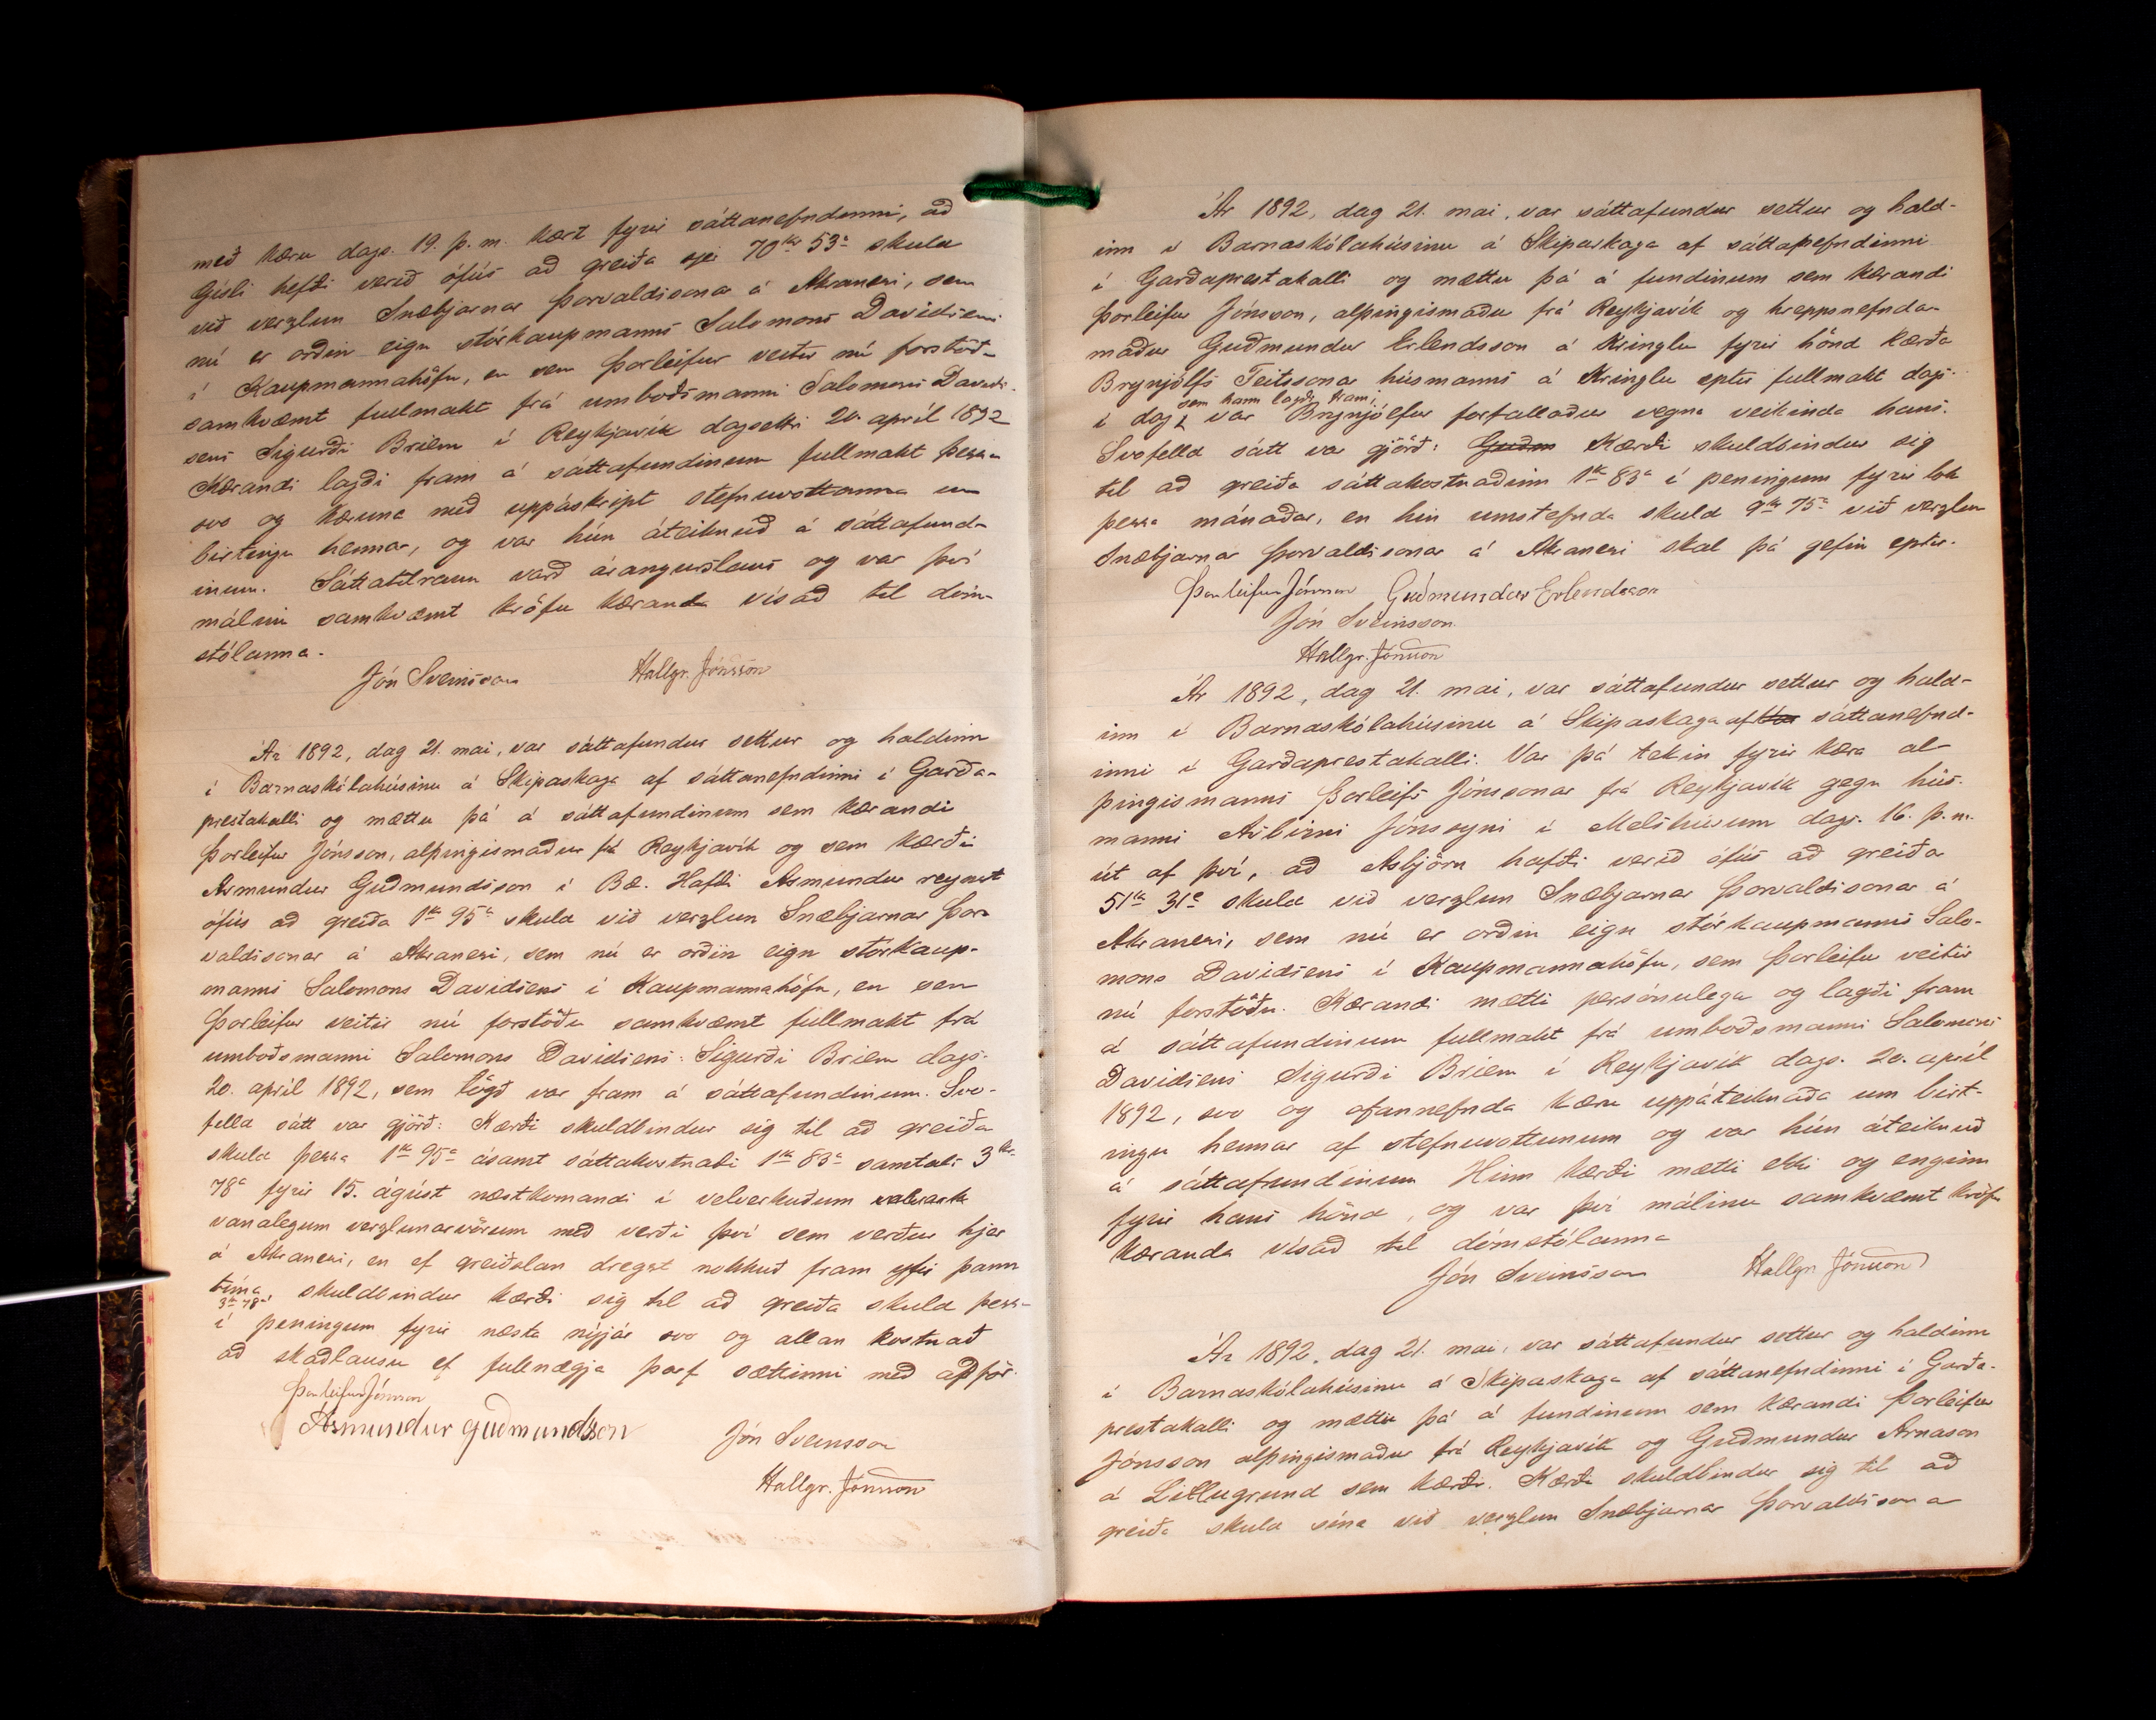 með kæru dags. 19. þ. m. kært fyrir sáttanefndinni, að
Gísli hefði verið ófús að greiða sjer 70 kr 53 a skuld
við verzlun Snæbjarnar Þorvaldssonar á Akranesi, sem
nú er orðin eign stórkaupmanns Salomons Davidsens
í Kaupmannahöfn, en sem Þorleifur veitir nú forstöðu
samkvæmt fullmakt frá umboðsmanni Salomons David-
sens Sigurði Briem í Reykjavík dagsettri 20. apríl 1892
Kærandi lagði fram á sáttafundinum fullmakt þessa
svo og kæruna með uppáskript stefnuvottanna um
birtingu hennar, og var hún áteiknuð á sáttafund-
inum. Sáttatilraun varð árangurslaus og var því
málinu samkvæmt kröfu kæranda vísað til dóm-
stólanna.
Jón Sveinsson Hallgr. Jónsson
Ár 1892, dag 21. mai, var sáttafundur settur og haldinn
í Barnaskólahúsinu á Skipaskaga af sáttanefndinni í Garða-
prestakalli og mættu þá á sáttafundinum sem kærandi
Þorleifur Jónsson, alþingismaður frá Reykjavík og sem kærði
Ásmundur Guðmundsson í Bæ. Hafði Ásmundur reynst
ófús að greiða 1 kr 95 a skuld við verzlun Snæbjarnar Þor-
valdssonar á Akranesi, sem nú er orðin eign stórkaup-
manns Salomons Davidsens í Kaupmannahöfn, en sem
Þorleifur veitir nú forstöðu samkvæmt fullmakt frá
umboðsmanni Salomons Davidsens: Sigurði Briem dags.
20. apríl 1892, sem lögð var fram á sáttafundinum. Svo-
felld sátt var gjörð: Kærði skuldbindur sig til að greiða
skuld þessa 1 kr 95 a ásamt sáttakostnaði 1 kr 83 a samtals 3 kr.
78 a fyrir 15. ágúst næstkomandi í velverkuðum
vanalegum verzlunarvörum með verði því sem verður hjer
á Akranesi, en ef greiðslan dregst nokkuð fram yfir þann
tíma skuldbindur kærði sig til að greiða skuld þessa
3 kr 78 a
í peningum fyrir næsta nýjár svo og allan kostnað
að skaðlausu ef fullnægja þarf sættinni með aðför.
Þorleifur Jónsson
Ásmundur guðmundsson Jón Sveinsson
Hallgr. Jónsson
Ár 1892, dag 21. mai, var sáttafundur settur og hald-
inn í Barnaskólahúsinu á Skipaskaga af sáttanefndinni
í Garðaprestakalli og mættu þá á fundinum sem kærandi
Þorleifur Jónsson, alþingismaður frá Reykjavík og hreppsnefndar-
maður Guðmundur Erlendsson á Kringlu fyrir hönd kærða
Brynjólfs Teitssonar húsmanns á Kringlu eptir fullmakt dags.
sem hann lagði fram;
í dag, var Brynjólfur forfallaður vegna veikinda hans.
Svofelld sátt var gjörð: Guðm Kærði skuldbindur sig
til að greiða sáttakostnaðinn 1 kr 83 a í peningum fyrir lok
þessa mánaðar, en hin umstefnda skuld 9 kr 75 a við verzlun
Snæbjarnar Þorvaldssonar á Akranesi skal þá gefin eptir.
Þorleifur Jónsson Guðmundur Erlendsson
Jón Sveinsson
Hallgr. Jónsson
Ár 1892, dag 21. mai, var sáttafundur settur og hald-
inn í Barnaskólahúsinu á Skipaskaga af sáttanefnd-
inni í Garðaprestakalli. Var þá tekin fyrir kæra al-
þingismanns Þorleifs Jónssonar frá Reykjavík gegn hús-
manni Ásbirni Jónssyni í Melshúsum dags. 16. þ. m.
út af því, að Ásbjörn hafði verið ófús að greiða
51 kr 31 a skuld við verzlun Snæbjarnar Þorvaldssonar á
Akranesi, sem nú er orðin eign stórkaupmanns Salo-
mons Davidsens í Kaupmannahöfn, sem Þorleifur veitir
nú forstöðu. Kærandi mætti persónulega og lagði fram
á sáttafundinum fullmakt frá umboðsmanni Salomons
Davidsens Sigurði Briem í Reykjavík dags. 20. apríl
1892, svo og ofannefnda kæru uppáteiknaða um birt-
ingu hennar af stefnuvottunum og var hún áteiknuð
á sáttafundinum. Hinn kærði mætti ekki og enginn
fyrir hans hönd, og var því málinu samkvæmt kröfu
kæranda vísað til dómstólanna
Jón Sveinsson Hallgr. Jónsson
Ár 1892, dag 21. mai, var sáttafundur settur og haldinn
í Barnaskólahúsinu á Skipaskaga af sáttanefndinni í Garða-
prestakalli og mættu þá á fundinum sem kærandi Þorleifur
Jónsson alþingismaður frá Reykjavík og Guðmundur Árnason
á Litlugrund sem kærði. Kærði skuldbindur sig til að
greiða skuld sína við verzlun Snæbjarnar Þorvaldssonar